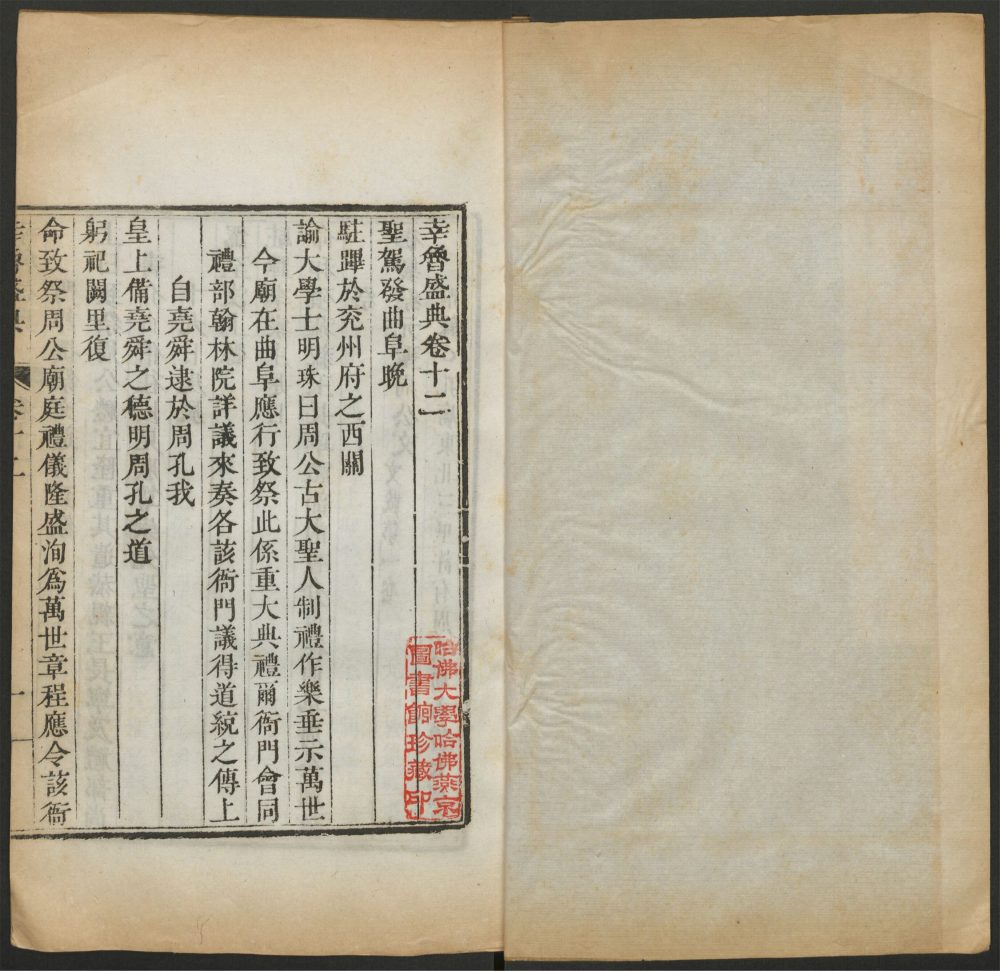 幸魯盛典卷十二
聖駕發曲阜晩
駐蹕於兖州府之西關
諭大學士明珠曰周公古大聖人制禮作樂垂示萬世
今廟在曲阜應行致祭此係重大典禮爾衙門會同
禮部翰林院詳議來奏各該衙門議得道統之傳上
自堯舜逮於周孔我
皇上備堯舜之德明周孔之道
躬祀闕里復
命致祭周公廟庭禮儀隆盛洵爲萬世章程應令該衙
幸魯盛典 卷十二 一
哈佛大學哈佛燕京
圖書館珍藏印